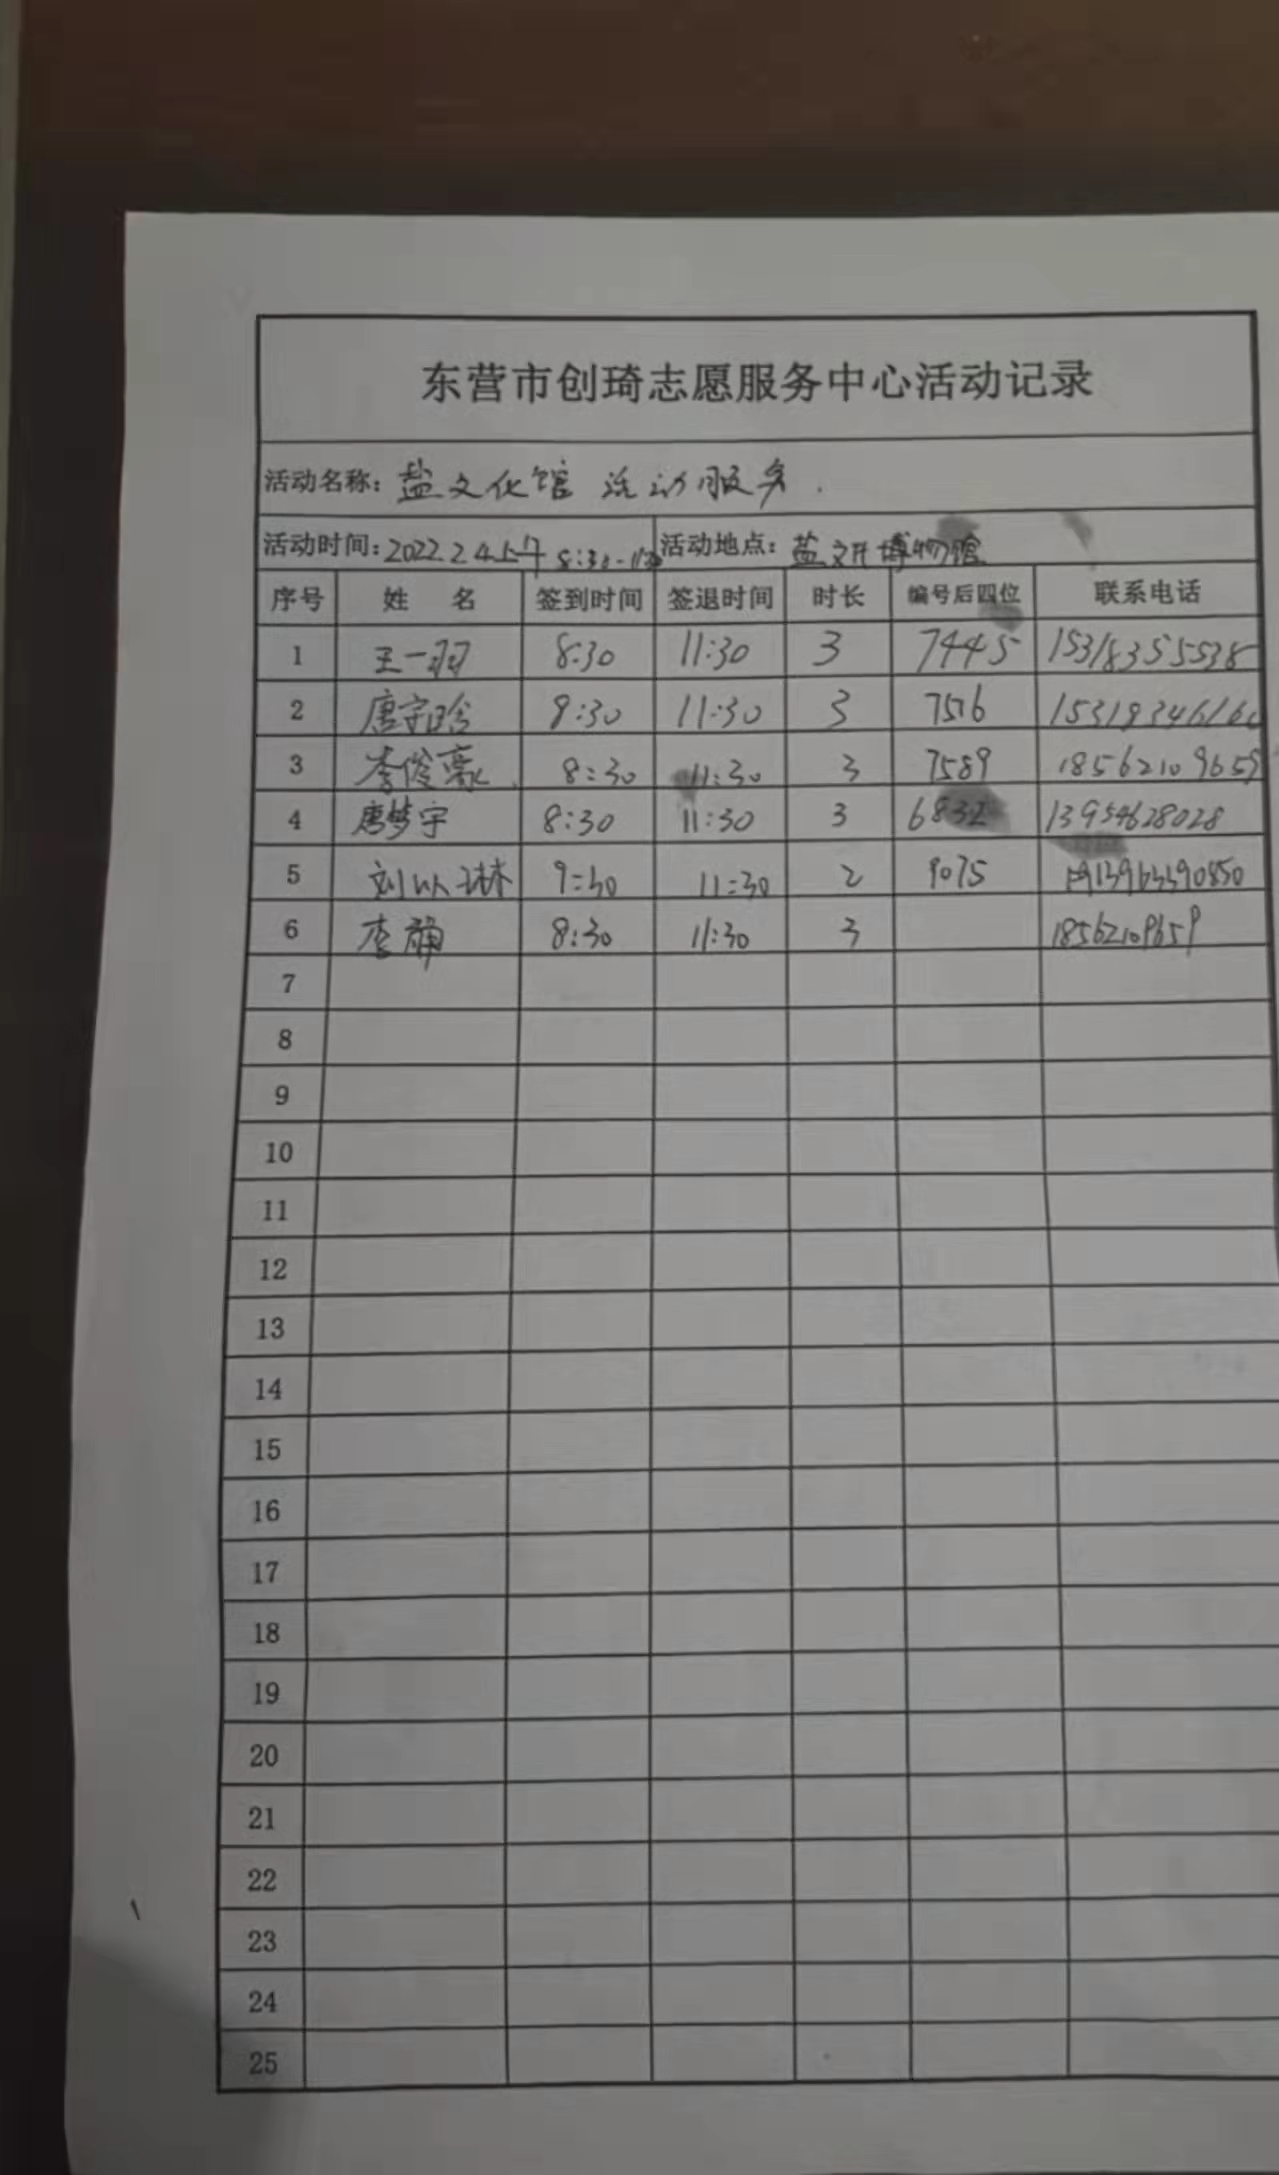 东营市创琦志愿服务中心活动记录
活动名称: 盐文化馆 活动服务.
活动时间: 2022.2.4上午 8:30-11:30 活动地点: 盐文化博物馆
序号 姓 名 签到时间 签退时间 时长 编号后四位 联系电话
1 王一羽 8:30 11:30 3 7445 15318355538
2 唐宇晗 8:30 11:30 3 7516
3 李俊豪 8:30 11:30 3 7589 18562109659
4 唐梦宇 8:30 11:30 3 6832 13954628028
5 刘以琳 9:30 11:30 2 9075
6 李静 8:30 11:30 3 18562109659
7
8
9
10
11
12
13
14
15
16
17
18
19
20
21
22
23
24
25